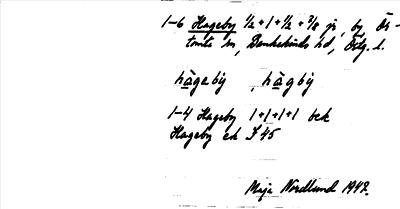 1-6 Hageby 1/2 + 1 + 1/2 + 7/8 jr, by, Ös-
tomta sn, Dankekinds hd, Östg. l.
hàgabỳ , hàgbỳ
1-4 Hageby 1+1+1+1 bek
Hageby ek J 45
Maja Nordlund 1947.